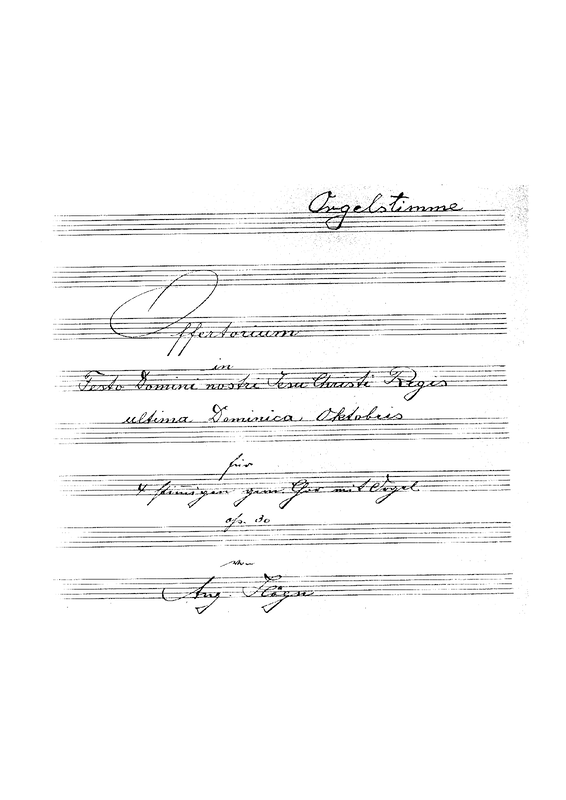 Orgelstimme
Offertorium
in
Festo Domini nostri Jesu Christi Regis
ultima Dominica Oktobris
für
4 stimmigen gem. Chor mit Orgel
op. 30
von
Aug.